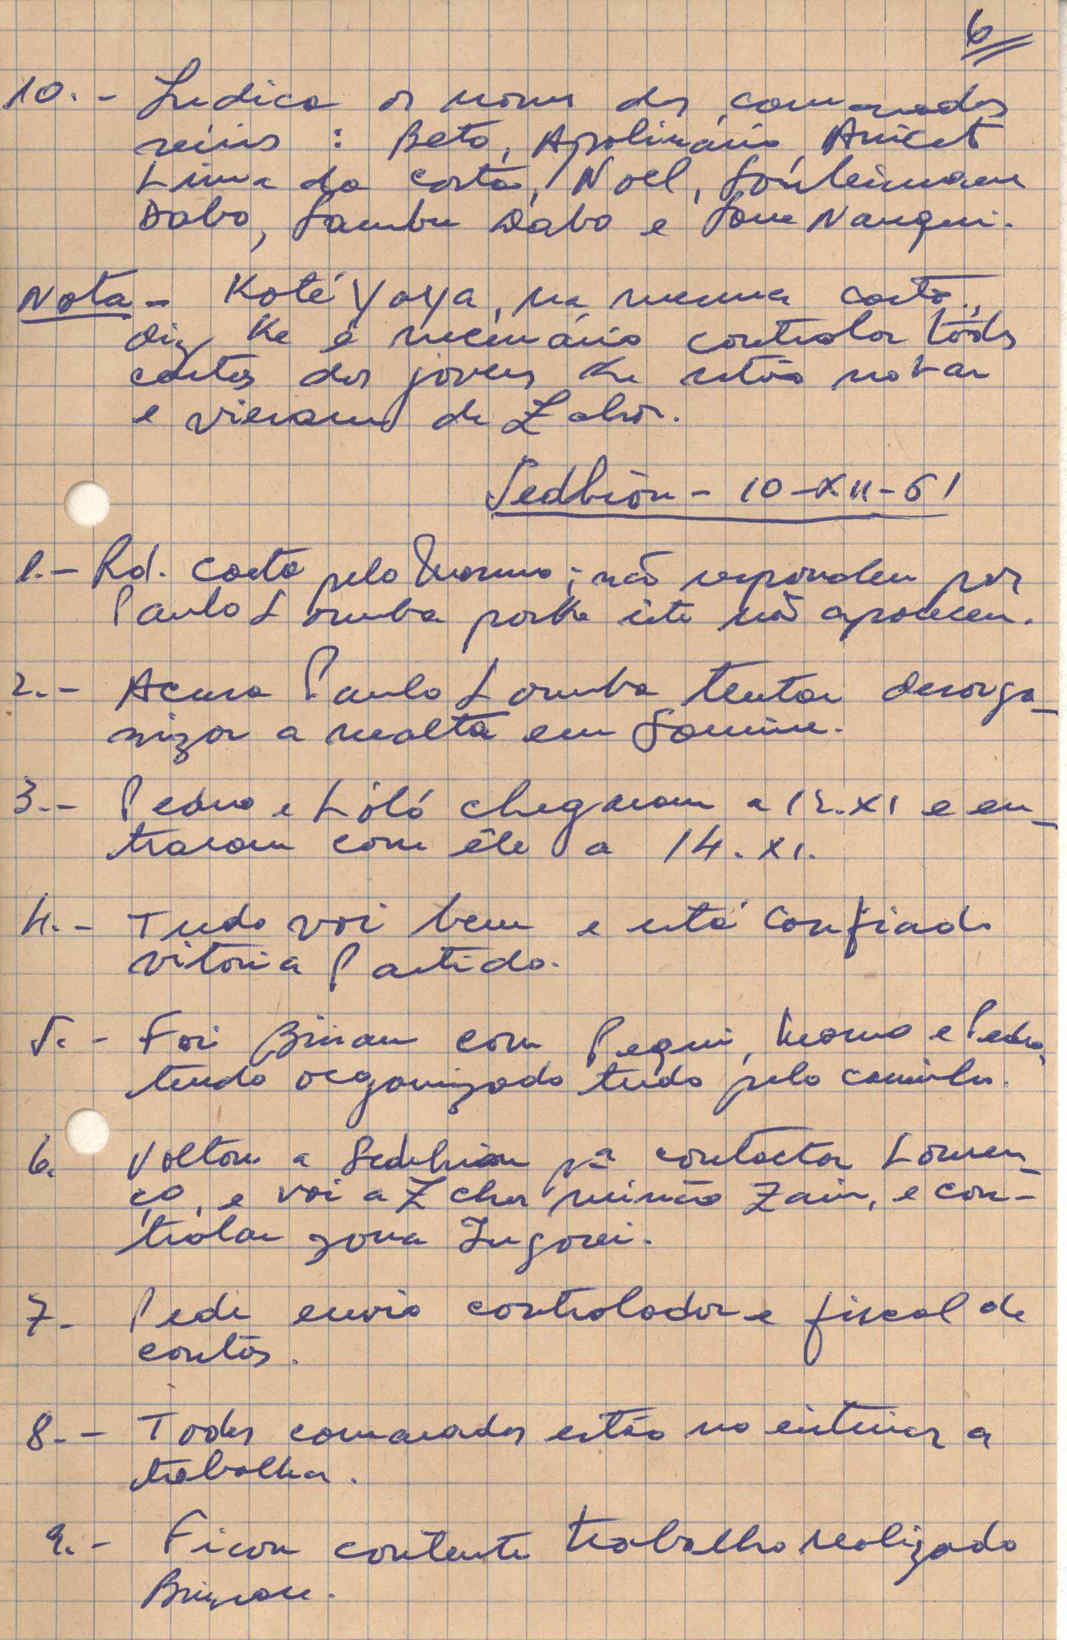 6
10. - Indica os nomes dos camaradas
reúis : Beto, Apolinário, Anicet
Lima da Costa, Noel, Souleimane
Dabo, Sambu Dabo e Nanqui.
Nota - Koté Yaya, na mesma carta,
diz ke é necessário controlar todas
cartas dos jovens ke estão
e vieram de
Sedhiou - 10-XII-61
1. - Rd. carta pelo Momo; não respondeu por
Paulo Lomba porke este não apareceu.
2. - Acusa Paulo Lomba tentar desorga-
nizar a malta em Samine.
3. - Pedro e Lóló chegaram a 12.XI e en-
traram com êle a 14.XI.
4. - Tudo voi bem e está confiado
vitoria Partido.
5. - Foi Binau com Pequi, Momo e Pedro,
tendo organizado tudo pelo caminho.
6. Voltou a Sedhiou pª contactar Louren-
ço, e voi a Zchor Zain, e con-
trolar zona Ingorei.
7. Pede envio controlador e fiscal de
contas.
8. - Todos camaradas estão no interior a
trabalhar.
9. - Ficou contente trabalho realizado